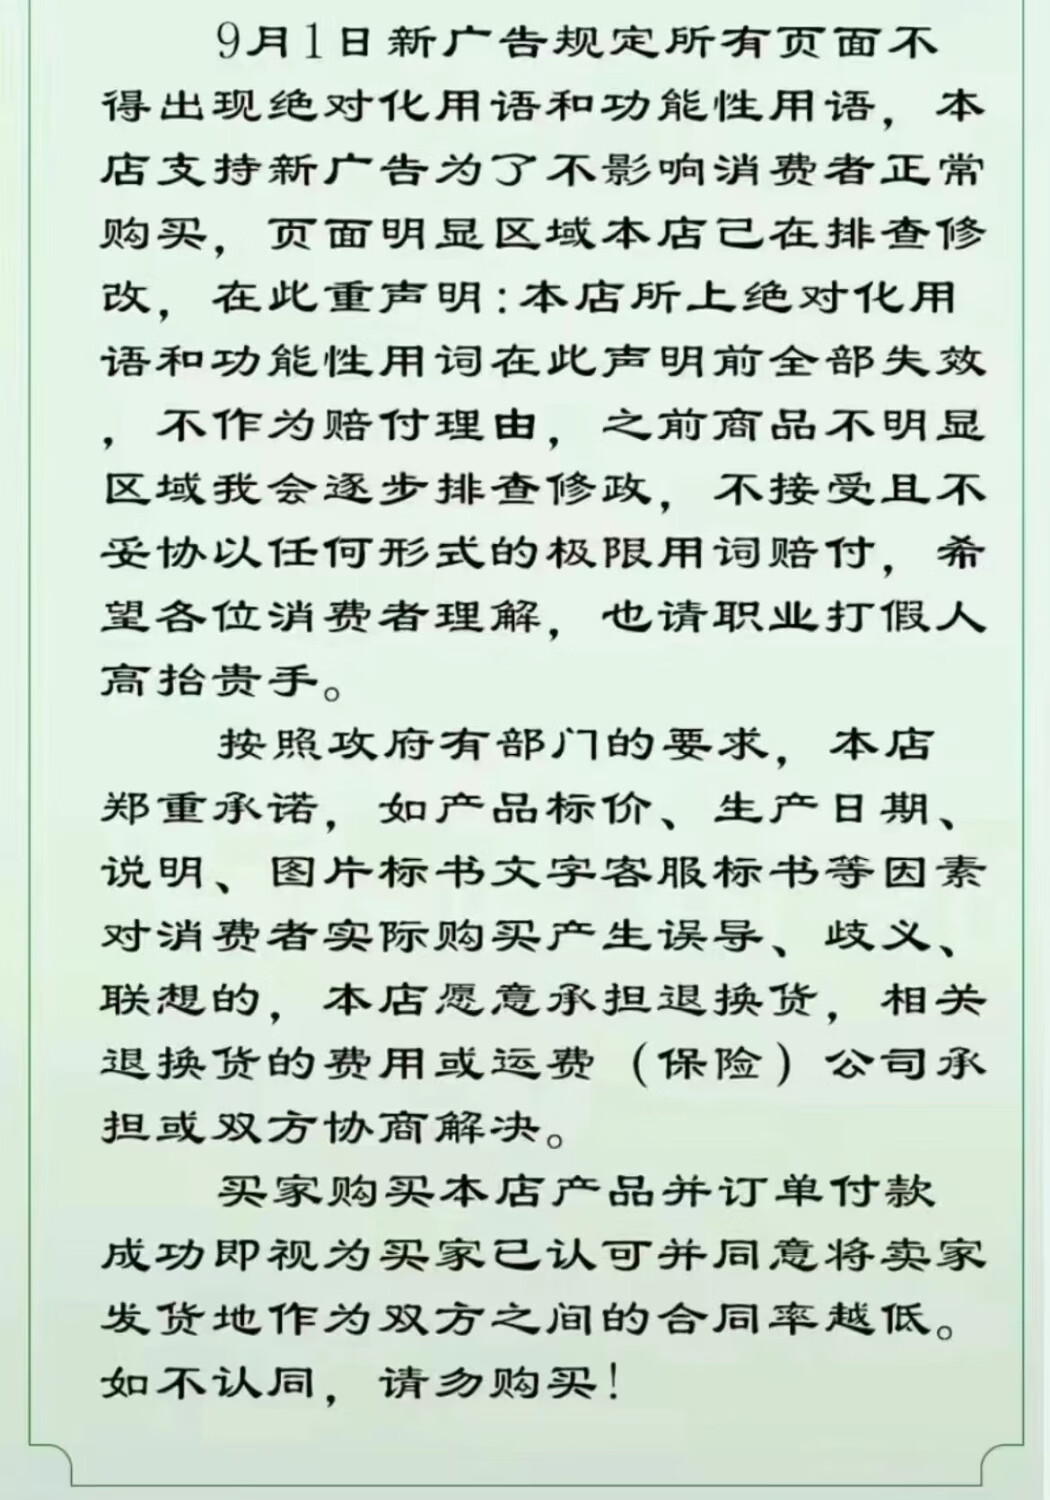 9月1日新广告规定所有页面不
得出现绝对化用语和功能性用语，本
店支持新广告为了不影响消费者正常
购买，页面明显区域本店己在排查修
改，在此重声明:本店所上绝对化用
语和功能性用词在此声明前全部失效
，不作为赔付理由，之前商品不明显
区域我会逐步排查修政，不接受且不
妥协以任何形式的极限用词赔付，希
望各位消费者理解，也请职业打假人
高抬贵手。
按照政府有部门的要求，本店
郑重承诺，如产品标价、生产日期、
说明、图片标书文字客服标书等因素
对消费者实际购买产生误导、歧义、
联想的，本店愿意承担退换货，相关
退换货的费用或运费（保险）公司承
担或双方协商解决。
买家购买本店产品并订单付款
成功即视为买家已认可并同意将卖家
发货地作为双方之间的合同率越低。
如不认同，请勿购买！